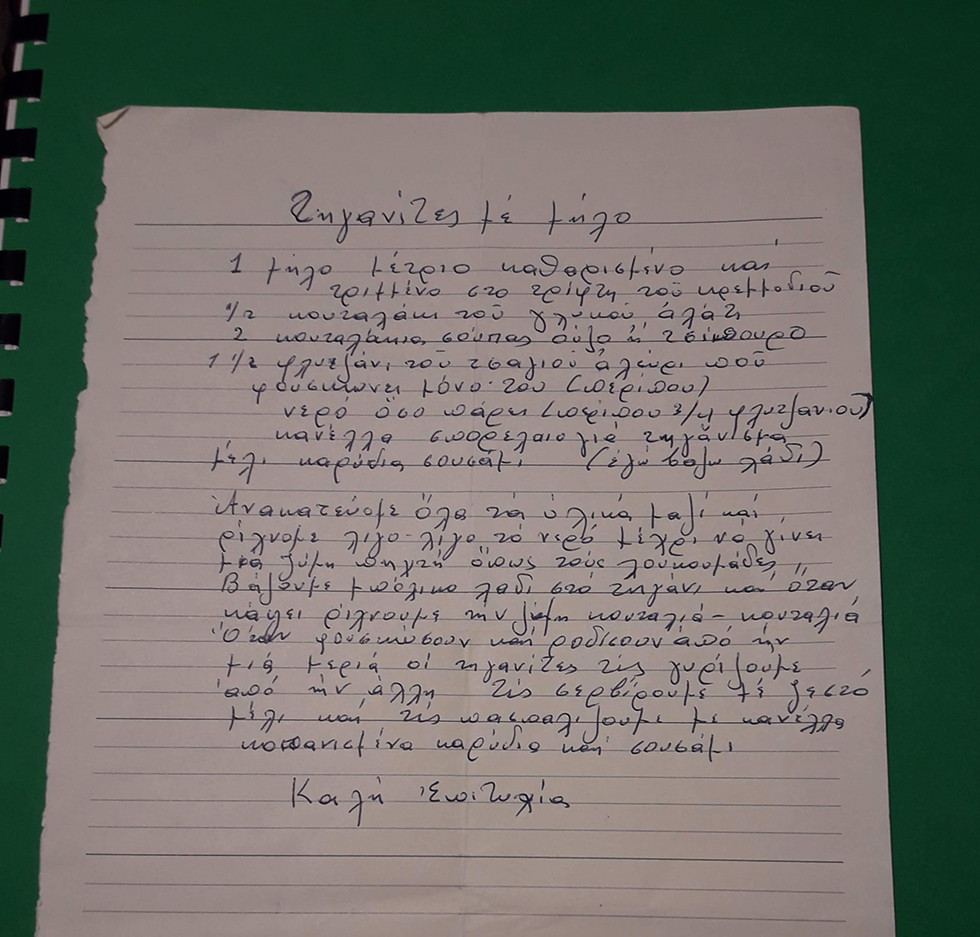 Τηγανίτες μέ μήλο
1 μήλο μέτριο καθαρισμένο καί
τριμμένο στο τρίφτη τοῦ κρεμμυδιοῦ
1/2 κουταλάκι τοῦ γλυκού ἀλάτι
2 κουταλάκια σούπας οὖζο ἤ τσίπουρο
1 1/2 φλυτζάνι τοῦ τσαγιοῦ ἀλεύρι ποῦ
φουσκώνει μόνο του (περίπου)
νερό ὅσο πάρει (περίπου 3/4 φλυτζανιοῦ)
κανέλλα σπορέλαιο γιά τηγάνισμα
μέλι καρύδια σουσάμι (ἐγώ βαζω λάδι)
Ἀνακατεύομε ὅλα τά ὑλικά μαζί καί
ρίχνομε λιγο-λίγο τό νερό μέχρι νά γίνει
μιά ζύμη πηχτή ὅπως τούς λουκουμάδες
Βάζουμε μπόλικο λαδι στό τηγάνι καί ὅταν
κάψει ρίχνουμε τήν ζύμη κουταλιά-κουταλιά
Ὅταν φουσκώσουν καί ροδίσουν ἀπό τήν
μιά μεριά οἱ τηγανίτες τίς γυρίζουμε
ἀπό τήν ἄλλη τίς σερβίρουμε μέ ζεστό
μέλι καί τίς πασπαλιζουμε με κανέλλα
κοπανισμένα καρύδια καί σουσάμι
Καλή Ἐπιτυχία